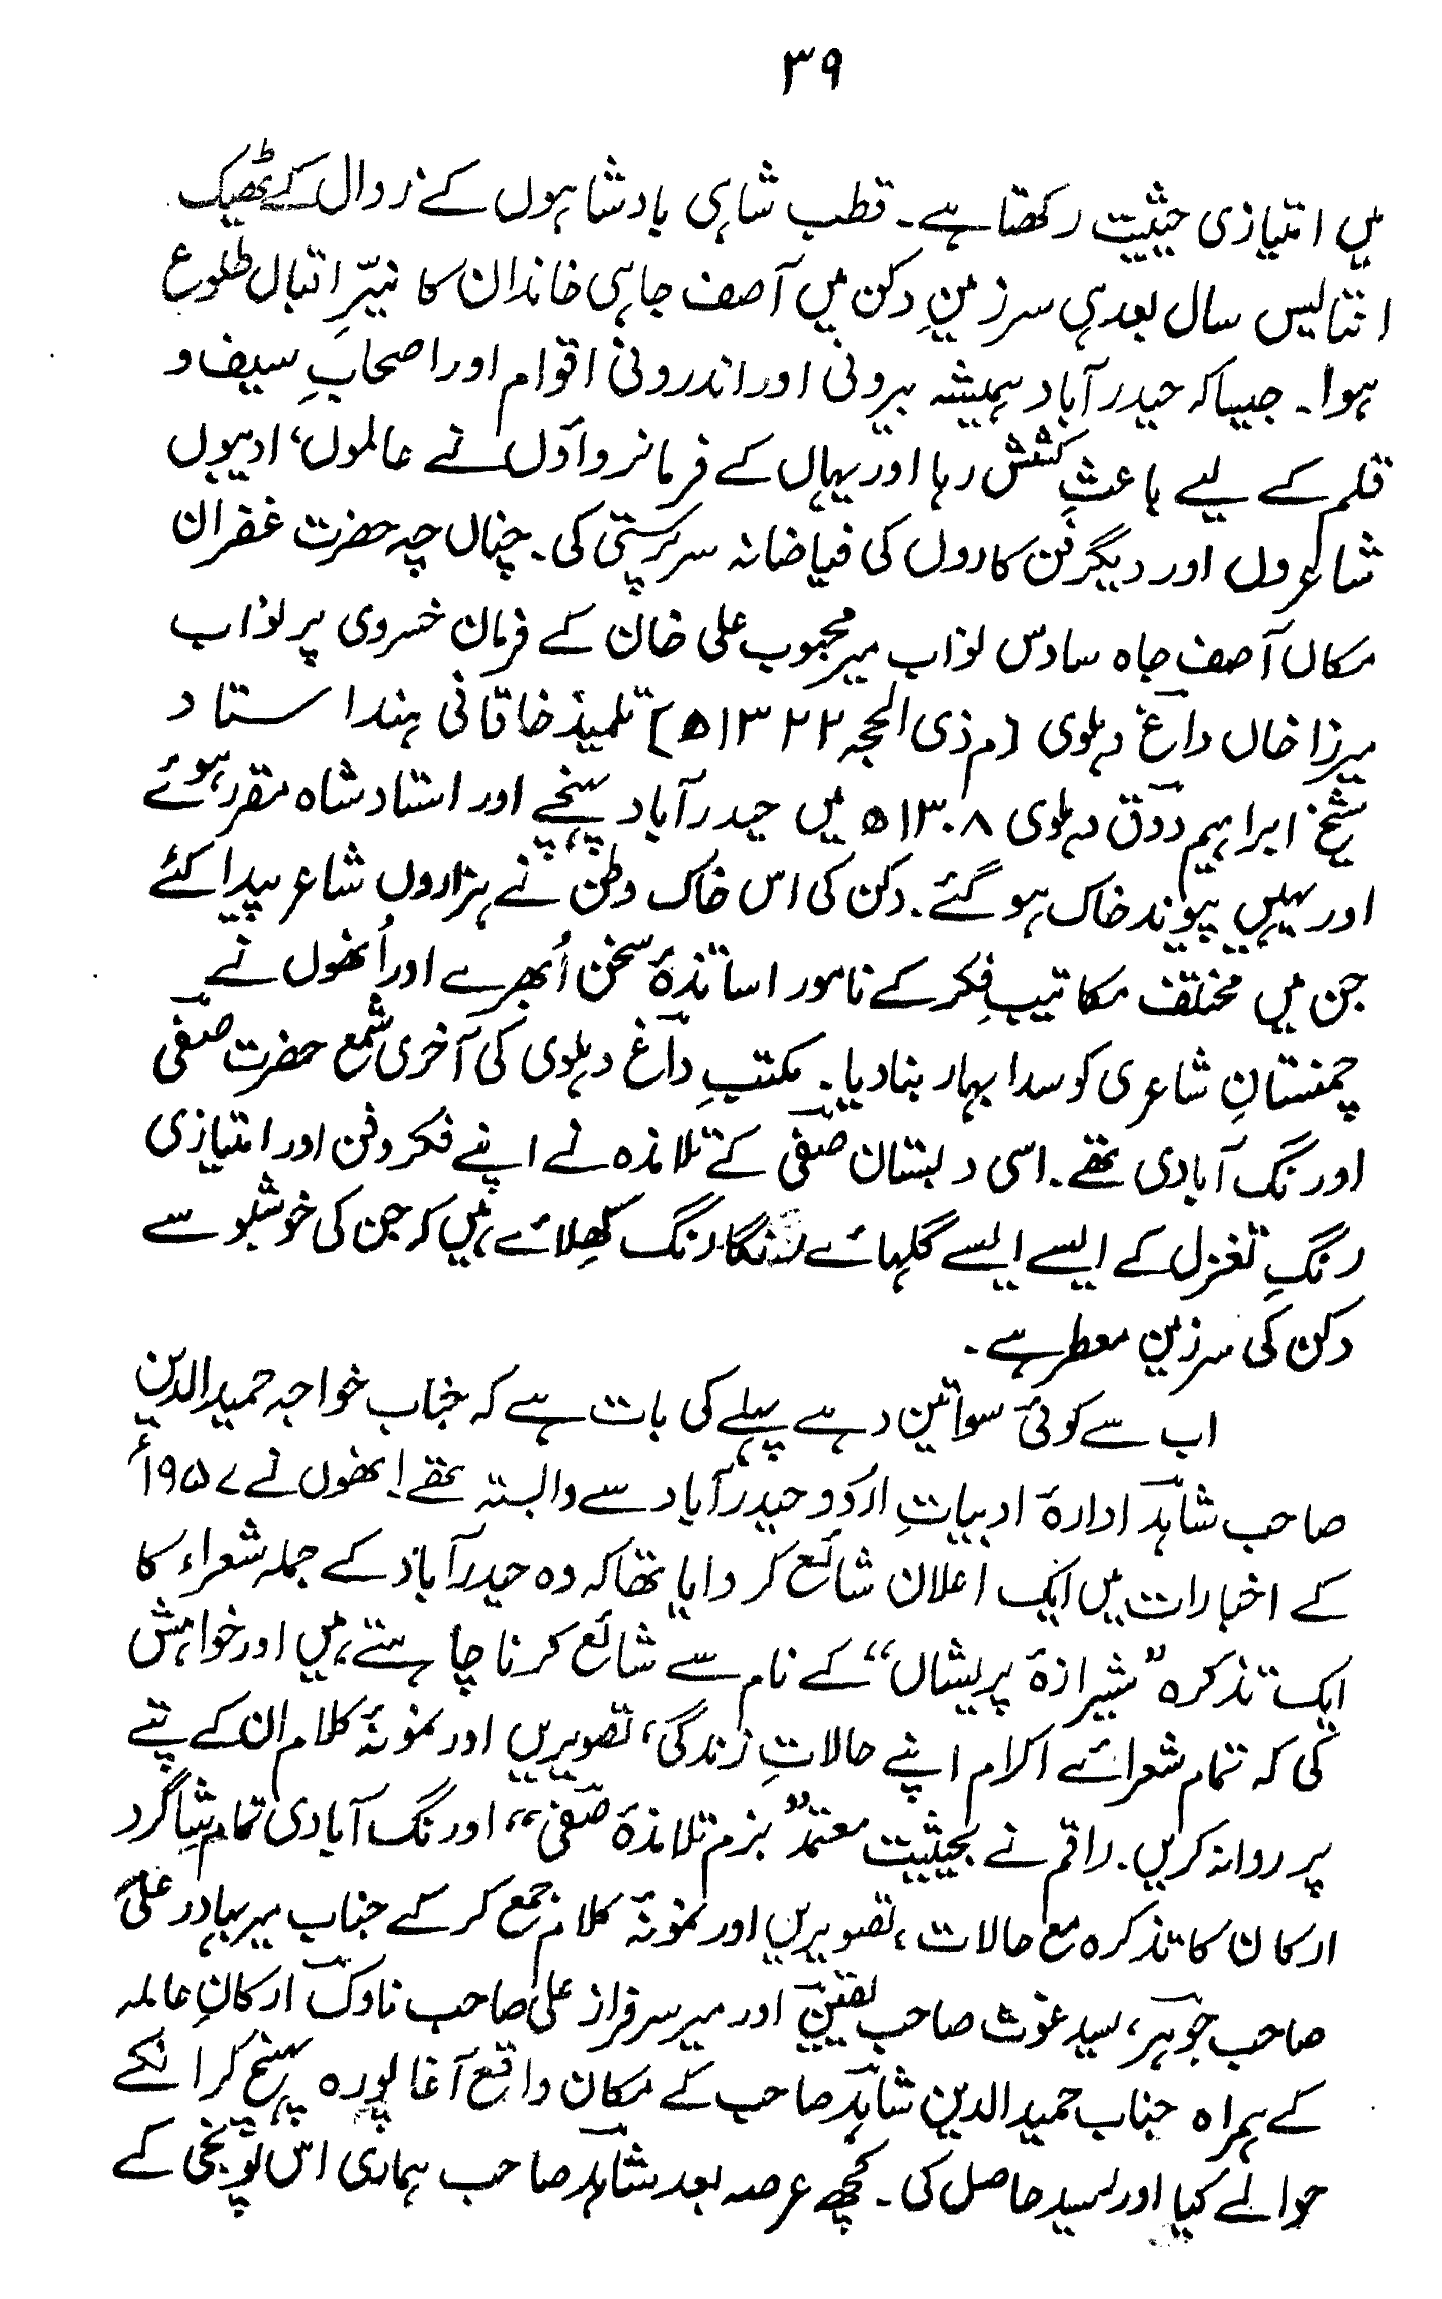 ۳۹
میں امتیازی حیثیت رکھتا ہے۔ قطب شاہی بادشاہوں کے زوال کے ٹھیک
انتالیس سال بعد ہی سرزمینِ دکن میں آصف جاہی خاندان کا نیّرِ اقبال طلوع
ہوا۔ جیسا کہ حیدرآباد ہمیشہ بیرونی اور اندرونی اقوام اور اصحابِ سیف و
قلم کے لیے باعثِ کشش رہا اور یہاں کے فرمانرواؤں نے عالموں، ادیبوں
شاعروں اور دیگر فن کاروں کی فیاضانہ سرپرستی کی۔ چناں چہ حضرت غفران
مکاں آصف جاہ سادس نواب میر محبوب علی خان کے فرمان خسروی پر نواب
میرزا خاں داغؔ دہلوی [م ذی الحجہ ۱۳۲۲ھ] تلمیذ خاقانی ہند استاد
شیخ ابراہیم ذوقؔ دہلوی ۱۳۰۸ھ میں حیدرآباد پہنچے اور استاد شاہ مقرر ہوئے
اور یہیں پیوند خاک ہو گئے۔ دکن کی اس خاک وطن نے ہزاروں شاعر پیدا کئے
جن میں مختلف مکاتیبِ فکر کے نامور اساتذۂ سخن اُبھرے اور اُنھوں نے
چمنستانِ شاعری کو سدا بہار بنا دیا۔ مکتبِ داغؔ دہلوی کی آخری شمع حضرت صفیؔ
اورنگ آبادی تھے۔ اسی دبستان صفیؔ کے تلامذہ نے اپنے فکر و فن اور امتیازی
رنگِ تغزل کے ایسے ایسے گلہائے رنگا رنگ کھِلائے ہیں کہ جن کی خوشبو سے
دکن کی سرزمین معطر ہے۔
اب سے کوئی سوا تین دہے پہلے کی بات ہے کہ جناب خواجہ حمید الدین
صاحب شاہدؔ ادارۂ ادبیاتِ اردو حیدرآباد سے وابستہ تھے انھوں نے ۱۹۵۷ء
کے اخبارات میں ایک اعلان شائع کروایا تھا کہ وہ حیدرآباد کے جملہ شعراء کا
ایک تذکرہ ”شیرازۂ پریشاں“ کے نام سے شائع کرنا چاہتے ہیں اور خواہش
کی کہ تمام شعرائے اکرام اپنے حالاتِ زندگی، تصویریں اور نمونۂ کلام ان کے پتے
پر روانہ کریں۔ راقم نے بحیثیت معتمد ”بزم تلامذۂ صفیؔ“ اورنگ آبادی تمام شاگرد
ارکان کا تذکرہ مع حالات، تصویریں اور نمونۂ کلام جمع کر کے جناب میر بہادر علی
صاحب جوہرؔ، سید غوث صاحب یقینؔ اور میر سرفراز علی صاحب ناوکؔ ارکانِ عاملہ
کے ہمراہ جناب حمید الدین شاہدؔ صاحب کے مکان واقع آغا پورہ پہنچ کر انکے
حوالے کیا اور رسید حاصل کی۔ کچھ عرصہ بعد شاہدؔ صاحب ہماری اس پونجی کے